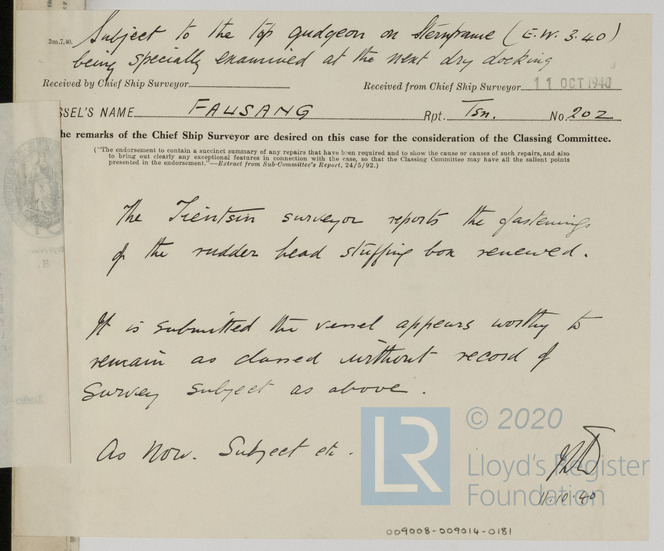 Subject to the top gudgeon on Sternframe (E.W. 3.40)
being specially examined at the next dry docking
Received by Chief Ship Surveyor
Received from Chief Ship Surveyor 11 OCT 1940
SSEL'S NAME FAUSANG Rpt. Tsn. No. 202
he remarks of the Chief Ship Surveyor are desired on this case for the consideration of the Classing Committee.
("The endorsement to contain a succinct summary of any repairs that have been required and to show the cause or causes of such repairs, and also
to bring out clearly any exceptional features in connection with the case, so that the Classing Committee may have all the salient points
presented in the endorsement."—Extract from Sub-Committee's Report, 24/5/92.)
The Tientsin surveyor reports the fastenings
of the rudder head stuffing box renewed.
It is submitted the vessel appears worthy to
remain as classed without record of
Survey subject as above.
As Now. Subject etc.
11.10.40
LR
© 2020
Lloyd's Register
Foundation
009008-009014-0181